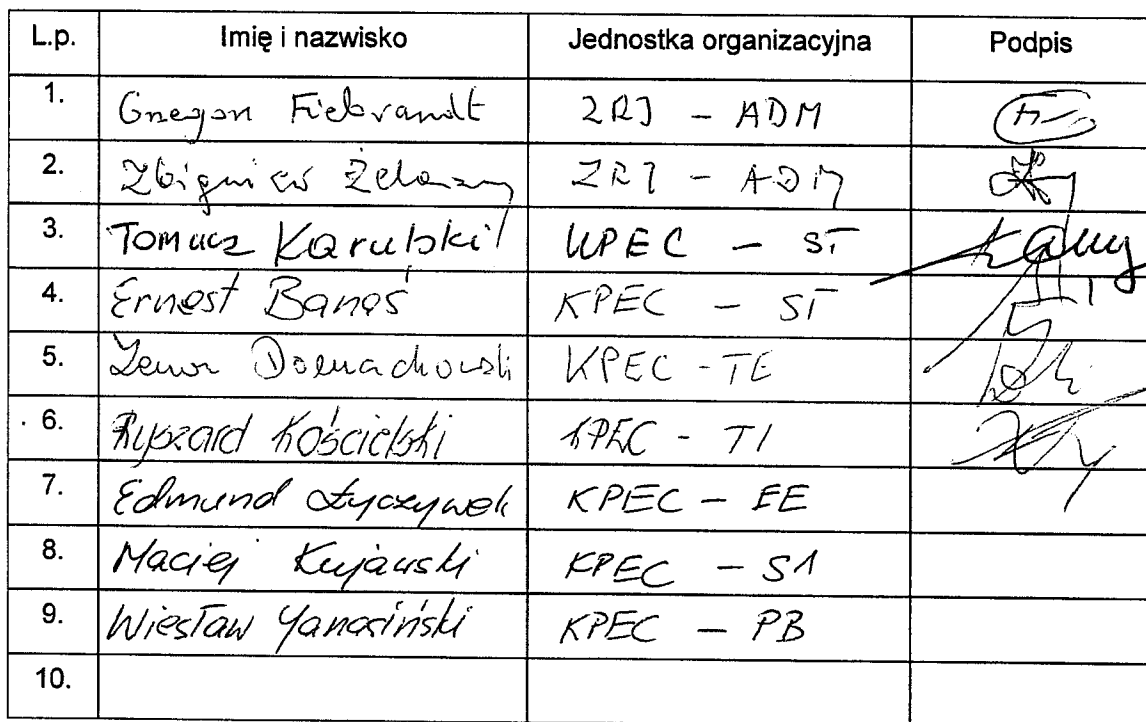 L.p. Imię i nazwisko Jednostka organizacyjna Podpis
1. Grzegorz Fiebrandt ZRJ - ADM
2. Zbigniew Żelazny ZRJ - ADM
3. Tomasz Karulski KPEC - ST
4. Ernest Banaś KPEC - ST
5. Zenon Domachowski KPEC - TE
6. Ryszard Kościelski KPEC - TI
7. Edmund Życzywek KPEC - EE
8. Maciej Kujawski KPEC - S1
9. Wiesław Janasiński KPEC - PB
10.